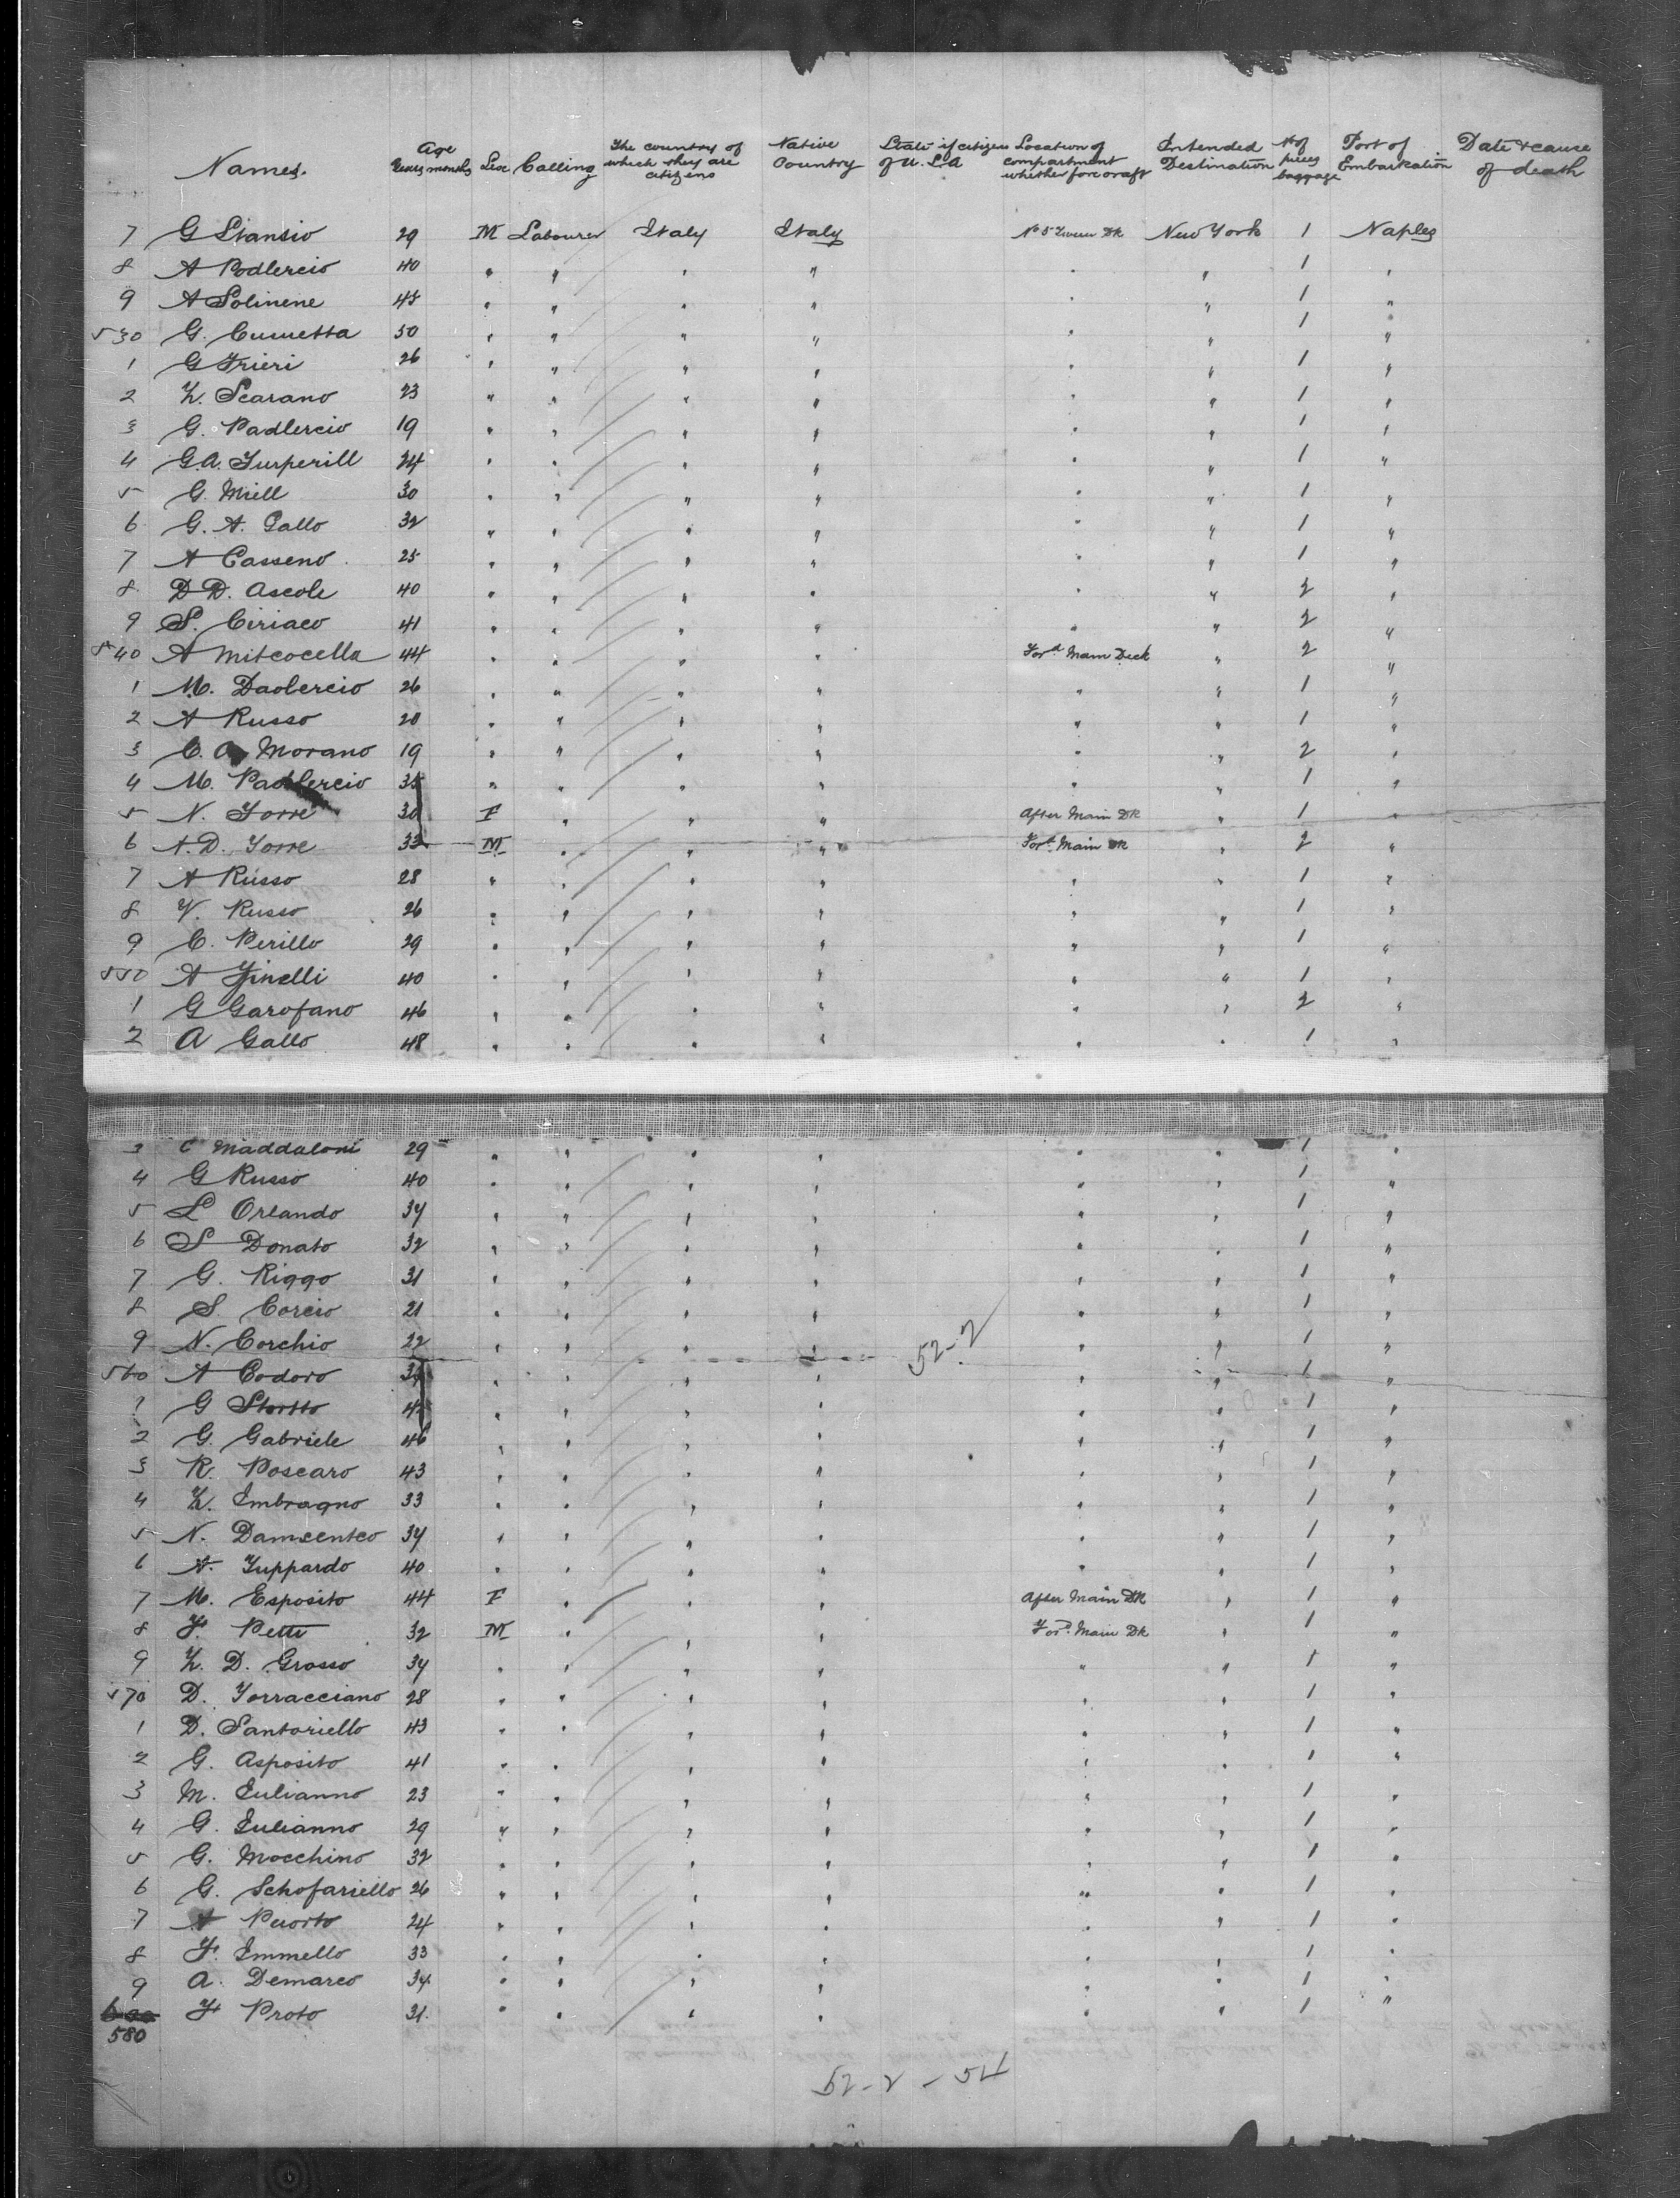 Names. Age Years months Sex Calling The country of which they are citizens Native Country State if citizens of U.S.A Location of compartment whether fore or aft Intended Destination No of pieces baggage Port of Embarkation Date & cause of death
7 G Stansio 29 M Labourer Italy Italy No 5 Tween Dk New York 1 Naples
8 A Podlercio 40 " " " " " " 1 "
9 A Solinene 45 " " " " " " 1 "
530 G. Cumetta 50 " " " " " " 1 "
1 G Frieri 26 " " " " " " 1 "
2 L. Scarano 23 " " " " " " 1 "
3 G. Padlercio 19 " " " " " " 1 "
4 G.A. Turperill 24 " " " " " " 1 "
5 G. Miell 30 " " " " " " 1 "
6 G. A. Gallo 32 " " " " " " 1 "
7 A Casseno 25 " " " " " " 1 "
8 D D. Ascole 40 " " " " " " 2 "
9 S. Ciriaco 41 " " " " " " 2 "
540 A Mitcocella 44 " " " " Ford Main Deck " 2 "
1 M. Daolercio 26 " " " " " " 1 "
2 A Russo 20 " " " " " " 1 "
3 C. A Morano 19 " " " " " " 2 "
4 M. Padlercio 35 " " " " " " 1 "
5 N. Torre 30 F " " " After Main Dk " 1 "
6 A. D. Torre 33 M " " " Ford Main Dk " 2 "
7 A Russo 28 " " " " " " 1 "
8 V. Russo 26 " " " " " " 1 "
9 C. Perillo 29 " " " " " " 1 "
550 A Ginelli 40 " " " " " " 1 "
1 G Garofano 46 " " " " " " 2 "
2 A Gallo 48 " " " " " " 1 "
3 C Maddaloni 29 " " " " " " 1 "
4 G Russo 40 " " " " " " 1 "
5 L Orlando 34 " " " " " " 1 "
6 S Donato 32 " " " " " " 1 "
7 G. Riggo 31 " " " " " " 1 "
8 S. Corcio 21 " " " " " " 1 "
9 N. Corchio 22 " " " " " " 1 "
52-2
560 A Codoro " " " " " " 1 "
1 G Stortto 45 " " " " " " 1 "
2 G. Gabriele 46 " " " " " " 1 "
3 R. Poscaro 43 " " " " " " 1 "
4 L. Imbragno 33 " " " " " " 1 "
5 N. Damsenteo 34 " " " " " " 1 "
6 A. Tuppardo 40 " " " " " " 1 "
7 M. Esposito 44 F " " " After Main Dk " 1 "
8 F. Petti 32 M " " " Ford Main Dk " 1 "
9 L. D. Grosso 34 " " " " " " 1 "
570 D. Torracciano 28 " " " " " " 1 "
1 D. Santoriello 43 " " " " " " 1 "
2 G. Asposito 41 " " " " " " 1 "
3 M. Iulianno 23 " " " " " " 1 "
4 G. Iulianno 29 " " " " " " 1 "
5 G. Mocchino 32 " " " " " " 1 "
6 G. Schofariello 26 " " " " " " 1 "
7 A Puorto 24 " " " " " " 1 "
8 F. Immello 33 " " " " " " 1 "
9 A. Demarco 34 " " " " " " 1 "
600 F Proto 31 " " " " " " 1 "
580
52-2-54